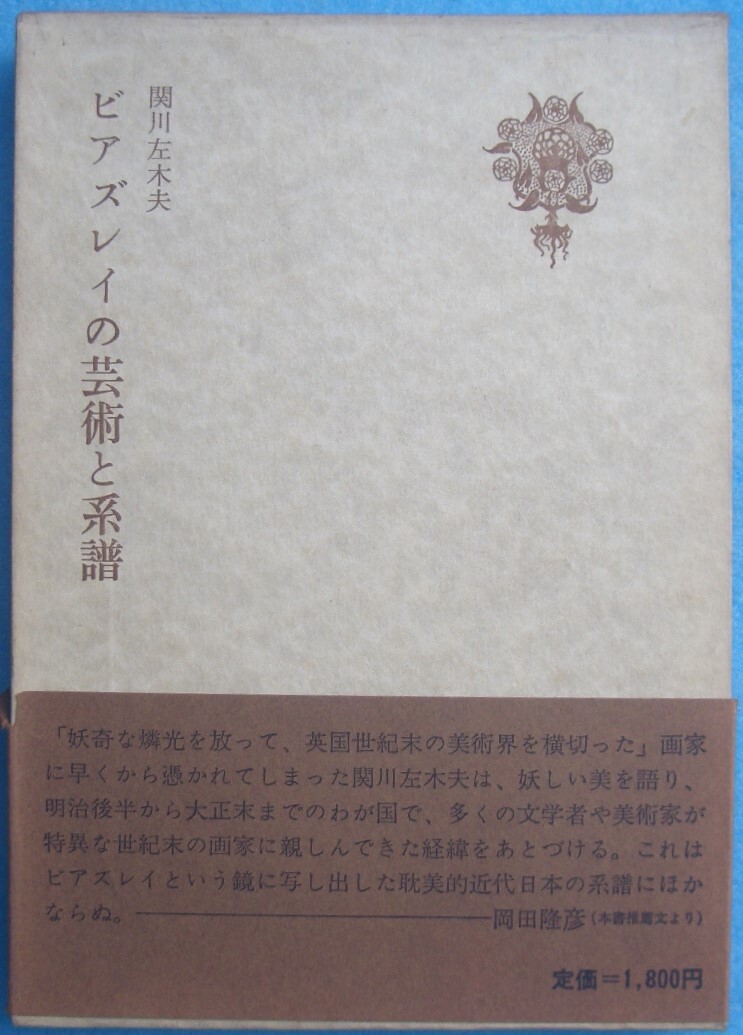 関川左木夫
ビアズレイの芸術と系譜
「妖奇な燐光を放って、英国世紀末の美術界を横切った」画家
に早くから憑かれてしまった関川左木夫は、妖しい美を語り、
明治後半から大正末までのわが国で、多くの文学者や美術家が
特異な世紀末の画家に親しんできた経緯をあとづける。これは
ビアズレイという鏡に写し出した耽美的近代日本の系譜にほか
ならぬ。――――――――――岡田隆彦(本書推薦文より)
定価=1,800円